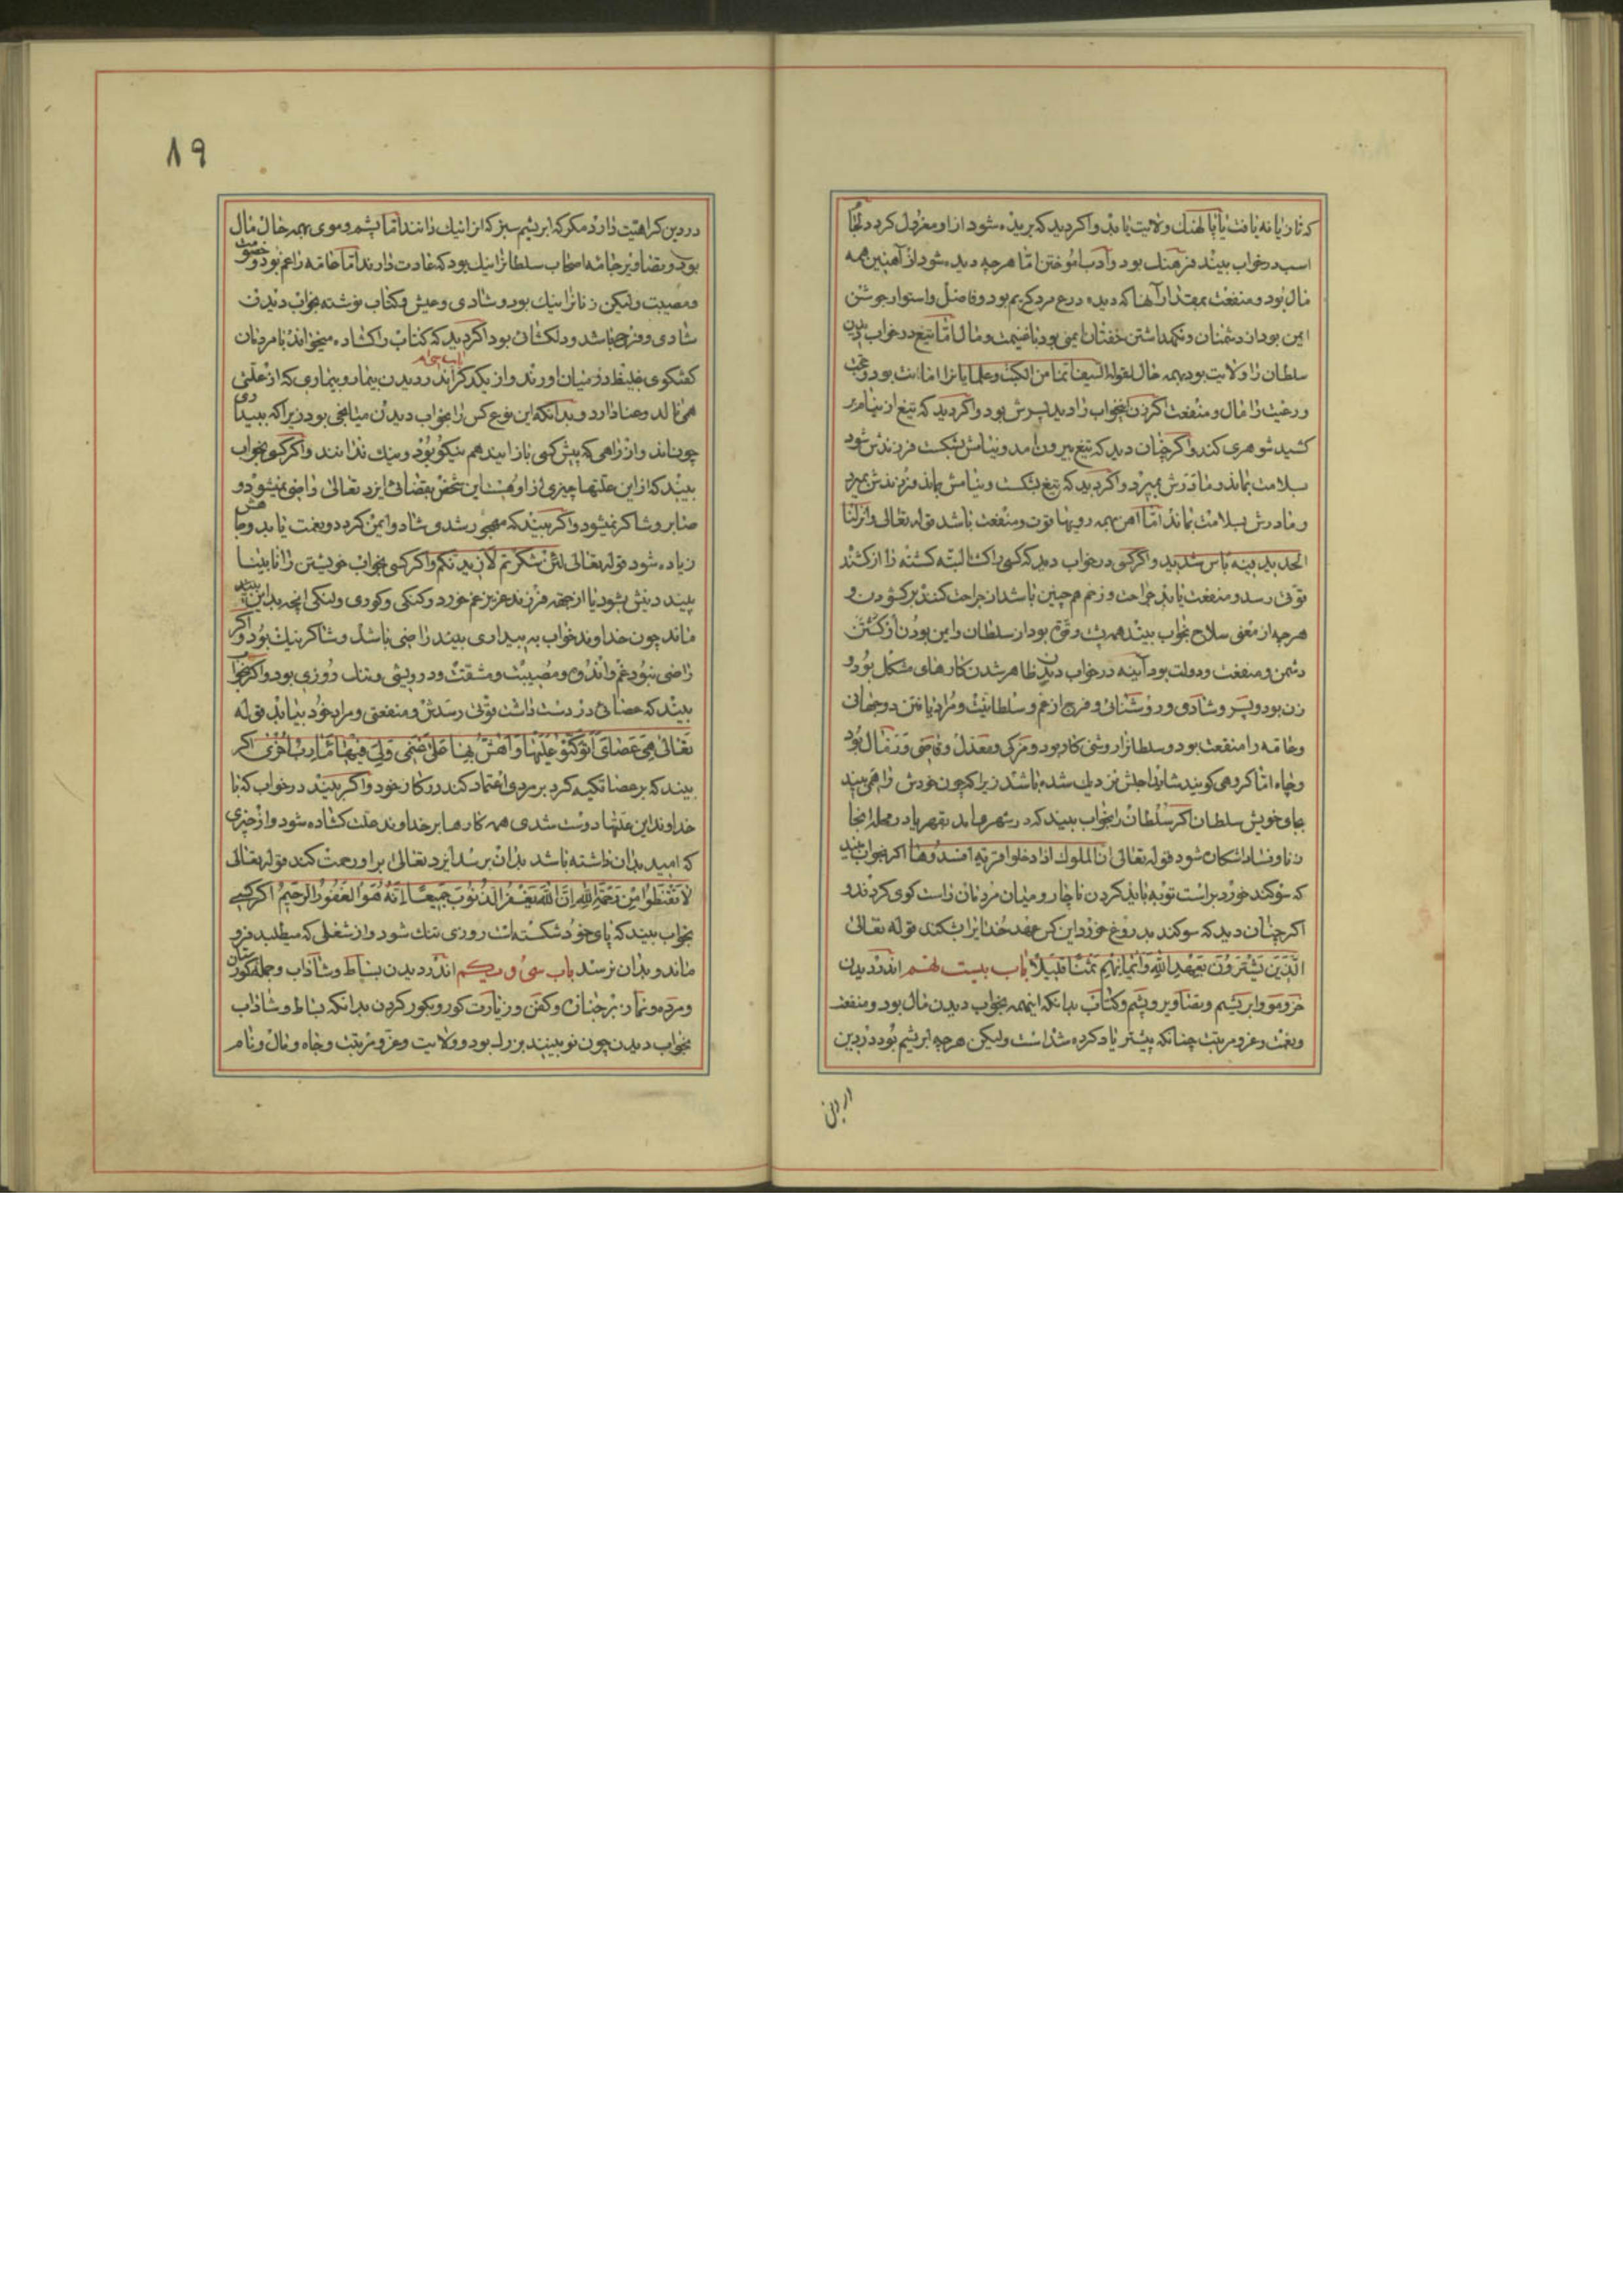 که تازیانه یافت یا پالهنك ولایت یابد واکر دید که بریده شود از او معزول کردد
اسب در خواب بیند فرهنك بود وادب اموختن اما هرچه دیده شود از آهنین همه
مال بود ومنفعت بمقدار آهنها که دیده درع مرد کریم بود وفاضل واستوار جوشن
ایمن بود از دشمنان ونکهداشتن خفتان ایمنی بود با غنیمت ومال اما تیغ در خواب دیدن
سلطان را ولایت بود بهمه حال
ورعیت را مال ومنفعت اکر زن بخواب را دید پسرش بود واکر دید که تیغ از نیام بر
کشید شوهری کند واکر چنان دید که تیغ بیرون امد ونیامش بشکست فرزندش شود
بسلامت بماند ومادرش بمیرد واکر دید که تیغ بشکست ونیامش بماند فرزندش بمیرد
ومادرش بسلامت بماند اما اهن بهمه رویها قوت ومنفعت باشد قوله تعالی وانزلنا
الحدید فیه باس شدید واکر کسی در خواب دید که کسی را کشت البته کشته را از کشند
قوتی رسد ومنفعت یابد جراحت وزخم هم چنین باشد از جراحت کننده بر کشودن و
هرچه از معنی سلاح بخواب بیند همه پشت وقوة بود از سلطان وایمن بودن از کشتن
دشمن ومنفعت ودولت بود آینه در خواب دیدن ظاهر شدن کارهای مشکل بود و
زن بود وپسر وشادی وروشنائی وفرج از غم وسلطانیت ومراد یافتن دو جهانی
وعامه را منفعت بود وسلطانرا روشنی کار بود ومزکی ومعدل وقاضی
وجاه اما کروهی کویند شاید اجلش نزدیك شده باشد زیرا که چون خودش را همی بیند
بجای خویش سلطان اکر سلطان را بخواب بیند که در شهر ها مد بقهر یا در محله انجا
زنا وفساد اشکان شود قوله تعالی ان الملوك اذا دخلوا قریة افسدوها اکر بخواب بیند
که سوکند خورد براست توبه باید کردن ناچار ومیان مردمان راست کوی کردد و
اکر چنان دید که سوکند بدروغ خورد این کس عهد خدایرا بشکند قوله تعالی
الذین یشترون بعهد الله وایمانهم ثمنا قلیلا باب بیست نهم اندر دیدن
خز ومو وابریشم وتصاویر وپشم وکتاب بدانکه اینهمه بخواب دیدن مال بود ومنفعت
ونعمت وعز ومرتبت چنانکه پیشتر یاد کرده شد است ولیکن هرچه ابریشم بود دردین
دردین
۸۹
دردین کراهیت دارد مکر که ابریشم سبز که انرا نیك دانند اما پشم وموی بهمه حال مال
بود وتصاویر جامه اصحاب سلطانرا نیك بود که عادت دارند اما عامه را غم بود وخصومت
ومصیبت ولیکن زنانرا نیك بود وشادی وعیش وکتاب نوشته بخواب دیدن
شادی وفرح باشد ودلکشائ بود اکر دید که کتاب را کشاده میخواند با مردمان
کفتکوی غلیظ در میان اورند واز یکدکر اند ر دیدن بیمار وبیماری که از علتی
همی نالد وعنا دارد وبدانکه این نوع کس را بخواب دیدن میانجی بود زیرا که ببیند تا
چون اند واز راهی که پیش کسی باز ایند هم نیکو بود ونیك ندانند واکر کسی بخواب
بیند که از این علتها چیزی از او هست این شخص بقضائ ایزد تعالی راضی نمیشود و
صابر وشاکر نمیشود واکر بیند که مهجور شدی شاد وایمن کردد ونعمت یابد وجا هش
زیاده شود قوله تعالی لئن شکرتم لازیدنکم واکر کسی بخواب خویشتن را نابینا
بیند دینش بشود یا از جهة فرزند عزیز غم خورد وکنکی وکوری ولنکی انچه بداین بیند
ماند چون خداوند خواب به بیداری بیند راضی باشد وشاکر نیك بود واکر
راضی نبود غم واندوه ومصیبت ومشقت ودرویشی وتنك روزی بود واکر بخواب
بیند که عصائ در دست داشت قوتی رسدش ومنفعتی ومراد خود بیابد قوله
تعالی هی عصای اتوکؤ علیها واهش بها علی غنمی ولی فیها مآرب اخری اکر
بیند که بر عصا تکیه کرد بر مردی اعتماد کند در کار خود واکر بیند در خواب که با
خداوند این علتها درست شدی همه کارها بر خداوند علت کشاده شود واز چیزی
که امید بدان داشته باشد بدان برسد ایزد تعالی براو رحمت کند قوله تعالی
لا تقنطوا من رحمة الله ان الله یغفر الذنوب جمیعا انه هو الغفور الرحیم اکر کسی
بخواب بیند که پای خود شکسته است روزی تنك شود واز شغلی که میطلبد فرو
ماند وبدان نرسد باب سی ویکم اندر دیدن بساط وشاذاب وجمله کورستان
ومرده ونماز بر جنازه وکفن وزیارت کور وبکور کردن بدانکه بساط وشاذاب
بخواب دیدن چون نو بینند بزرك بود وولایت وعز ومرتبت وجاه ومال ونام